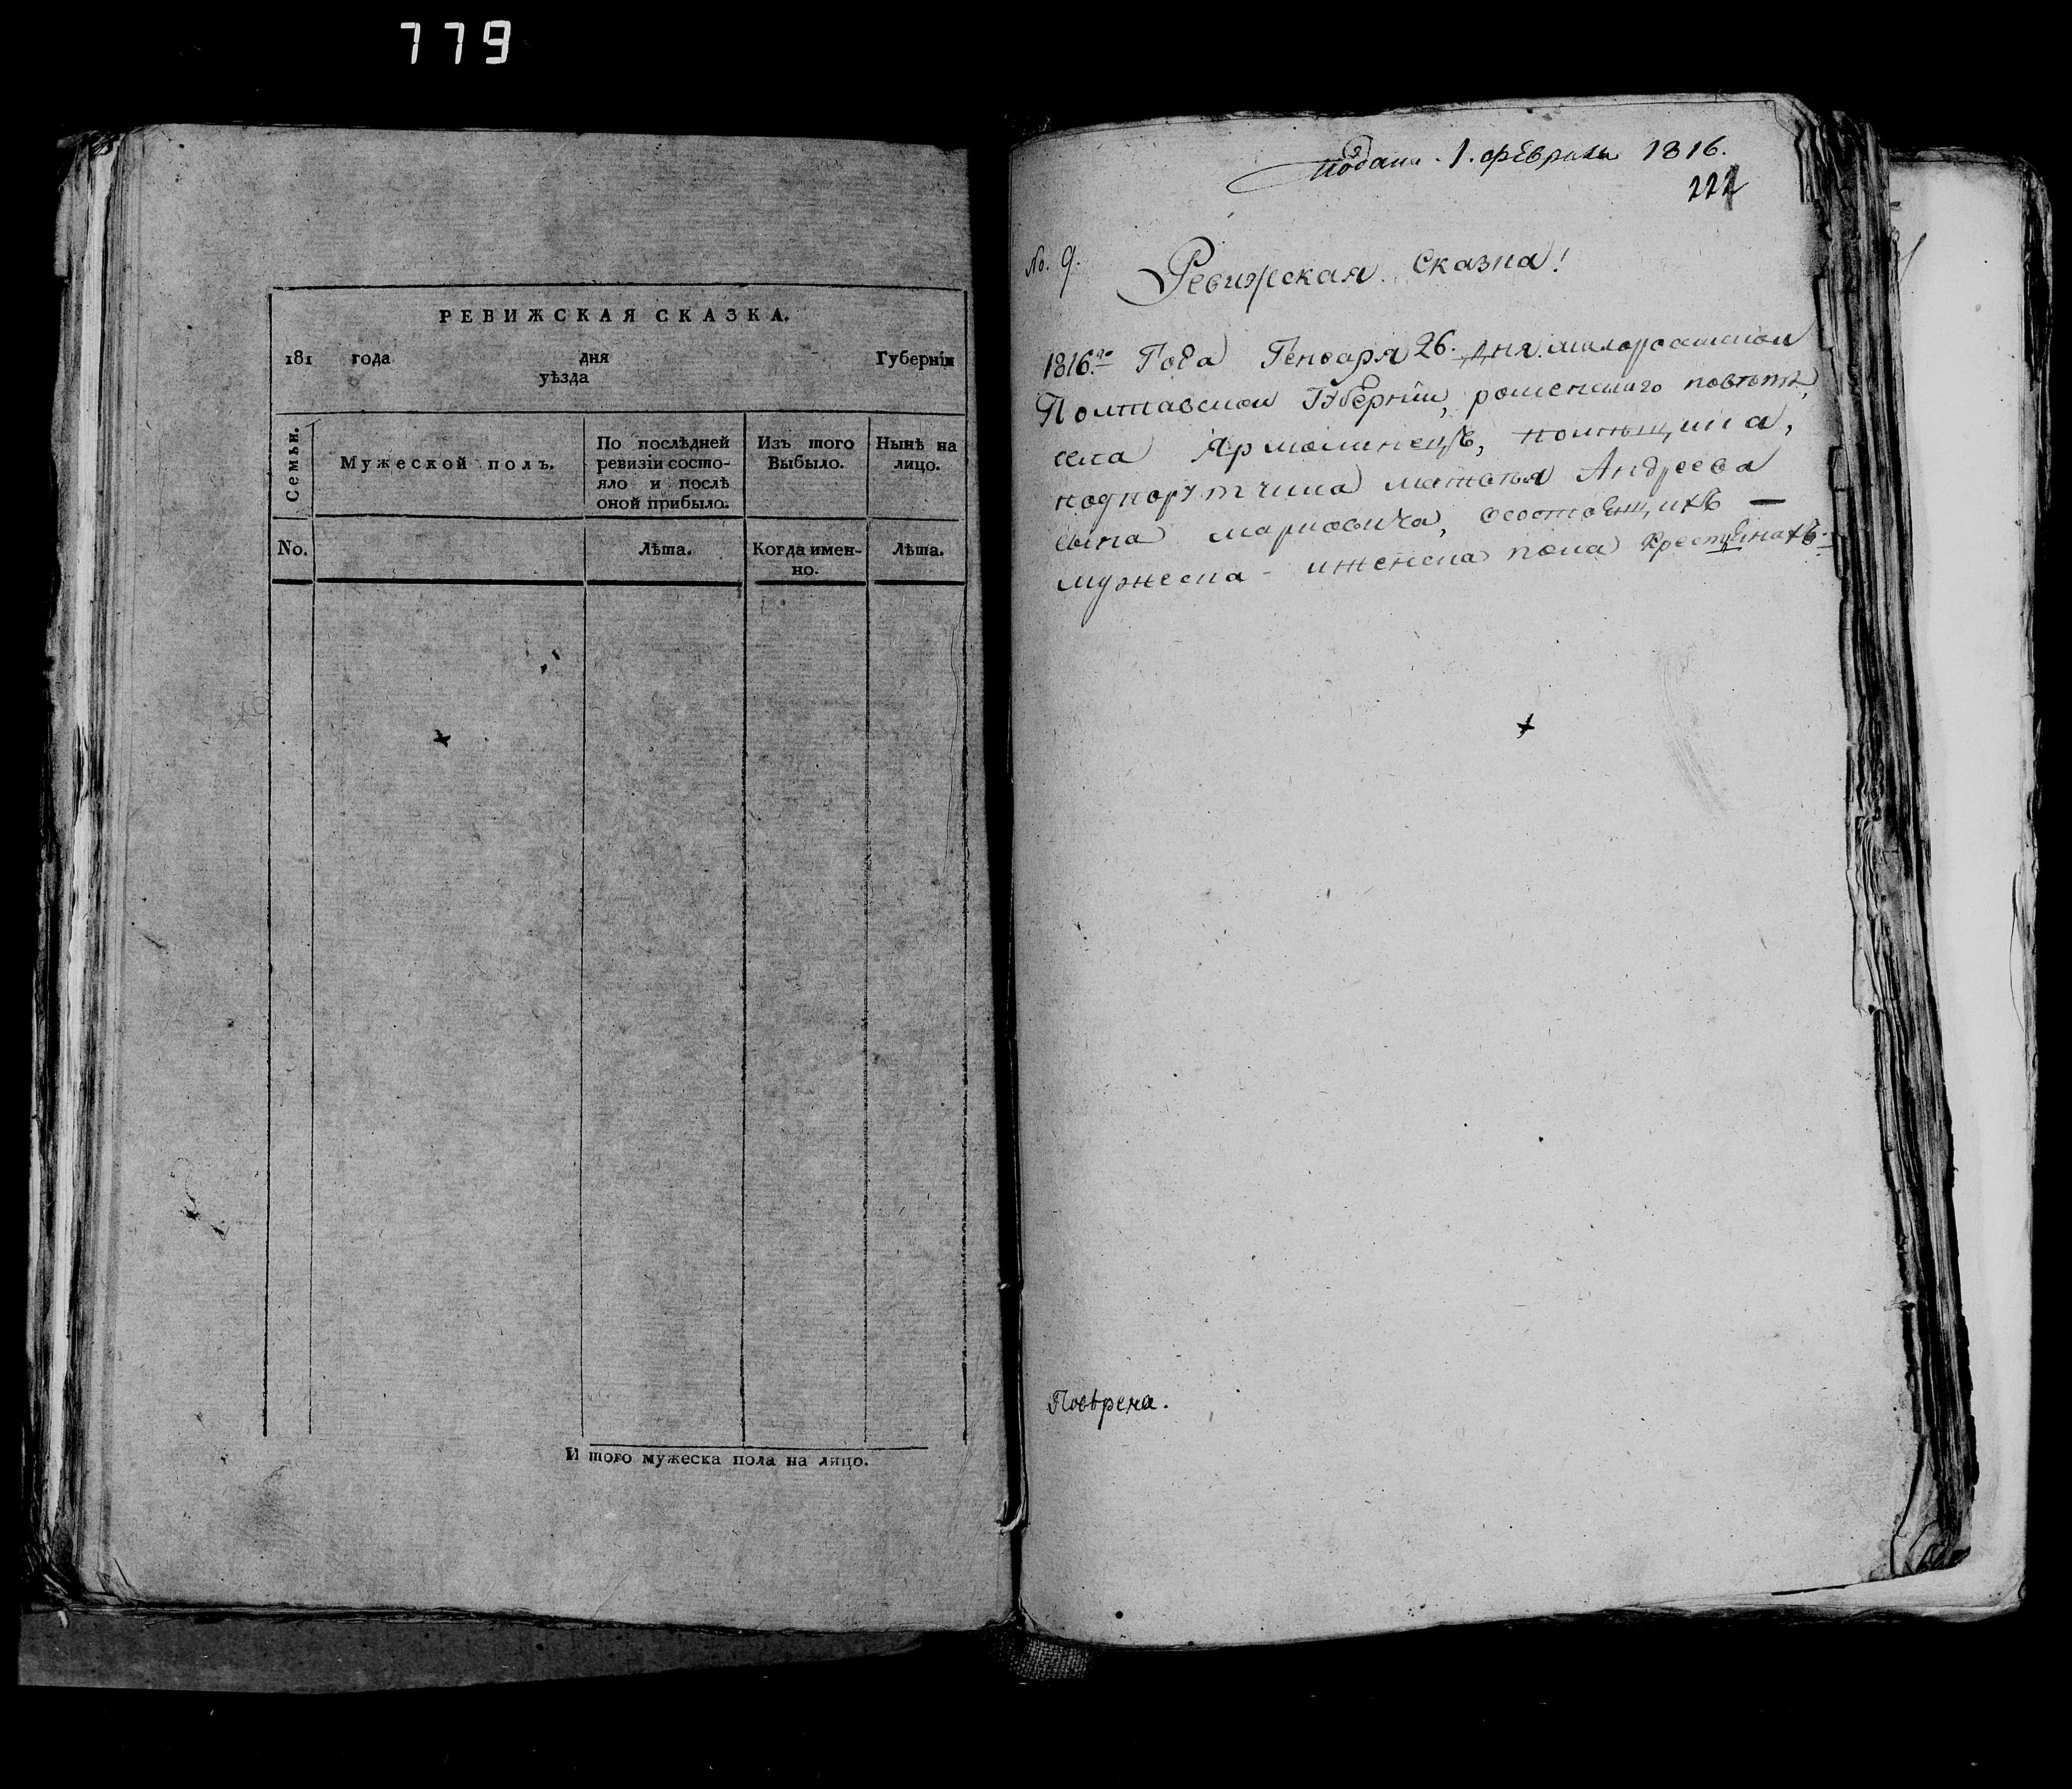 779
РЕВИЖСКАЯ СКАЗКА.
181 года дня Губернїи
уѣзда
Семьи.
Мужеской полъ.
По послѣдней
ревизїи состо-
яло и послѣ
оной прибыло.
Изъ того
Выбыло.
Нынѣ на
лицо.
No.
Лѣта.
Когда имен-
но.
Лѣта.
И того мужеска пола на лицо.
подана. 1. февраля 1816.
222
No. 9.
Ревижская Сказка!
1816.го Года Генваря 26. дня малороссиской
Полтавской Губернїи, роменскаго повѣта,
села Ярмолинецъ, помѣщика,
подпорутчика матвѣя Андреева
сына марковича, осостоящихъ —
мужеска - иженска пола крестьянахъ.
Повѣрена.